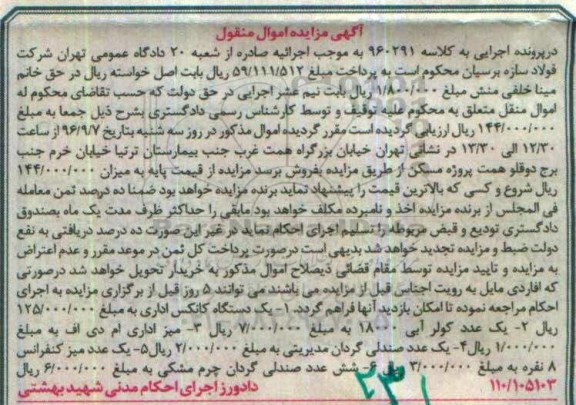 آگهی مزایده اموال منقول
درپرونده اجرایی به کلاسه ۹۶۰۲۹۱ به موجب اجرائیه صادره از شعبه ۲۰ دادگاه عمومی تهران شرکت
فولاد سازه برسیان محکوم است به پرداخت مبلغ ۵۹/۱۱۱/۵۱۲ ریال بابت اصل خواسته ریال در حق خانم
مینا خلفی منش مبلغ ۱/۸۰۰/۰۰۰ ریال بابت نیم عشر اجرایی در حق دولت که حسب تقاضای محکوم له
اموال منقل متعلق به محکوم علیه توقیف و توسط کارشناس رسمی دادگستری بشرح ذیل جمعا به مبلغ
۱۴۴/۰۰۰/۰۰۰ ریال ارزیابی گردیده است مقرر گردیده اموال مذکور در روز سه شنبه بتاریخ ۹۶/۹/۷ از ساعت
۱۲/۳۰ الی ۱۳/۳۰ در نشانی تهران خیابان بزرگراه همت غرب جنب بیمارستان ترتیا خیابان خرم جنب
برج دوقلو همت پروژه مسکن از طریق مزایده بفروش برسد مزایده از قیمت پایه به میزان ۱۴۴/۰۰۰/۰۰۰
ریال شروع و کسی که بالاترین قیمت را پیشنهاد نماید برنده مزایده خواهد بود ضمنا ده درصد ثمن معامله
فی المجلس از برنده مزایده اخذ و نامبرده مکلف خواهد بود مابقی را حداکثر ظرف مدت یک ماه بصندوق
دادگستری تودیع و قبض مربوطه را تسلیم اجرای احکام نماید در غیر این صورت ده درصد دریافتی به نفع
دولت ضبط و مزایده تجدید خواهد شد بدیهی است درصورت پرداخت کل ثمن در موعد مقرر و عدم اعتراض
به مزایده و تایید مزایده توسط مقام قضائی ذیصلاح اموال مذکور به خریدار تحویل خواهد شد درصورتی
که افرادی مایل به رویت اجناس قبل از مزایده می باشند می توانند ۵ روز قبل از برگزاری مزایده به اجرای
احکام مراجعه نموده تا امکان بازدید آنها فراهم گردد. ۱- یک دستگاه کانکس اداری به مبلغ ۱۲۵/۰۰۰/۰۰۰
ریال ۲- یک عدد کولر آبی ۱۸۰۰۰ به مبلغ ۷/۰۰۰/۰۰۰ ریال ۳- میز اداری ام دی اف به مبلغ
۱/۰۰۰/۰۰۰ ریال ۴- یک عدد صندلی گردان مدیریتی به مبلغ ۲/۰۰۰/۰۰۰ ریال ۵- یک عدد میز کنفرانس
۸ نفره به مبلغ ۳/۰۰۰/۰۰۰ ریال ۶- شش عدد صندلی گردان چرم مشکی به مبلغ ۶/۰۰۰/۰۰۰ ریال
۱۱۰/۱۰۵۱۰۳ دادورز اجرای احکام مدنی شهید بهشتی
۲۳۱